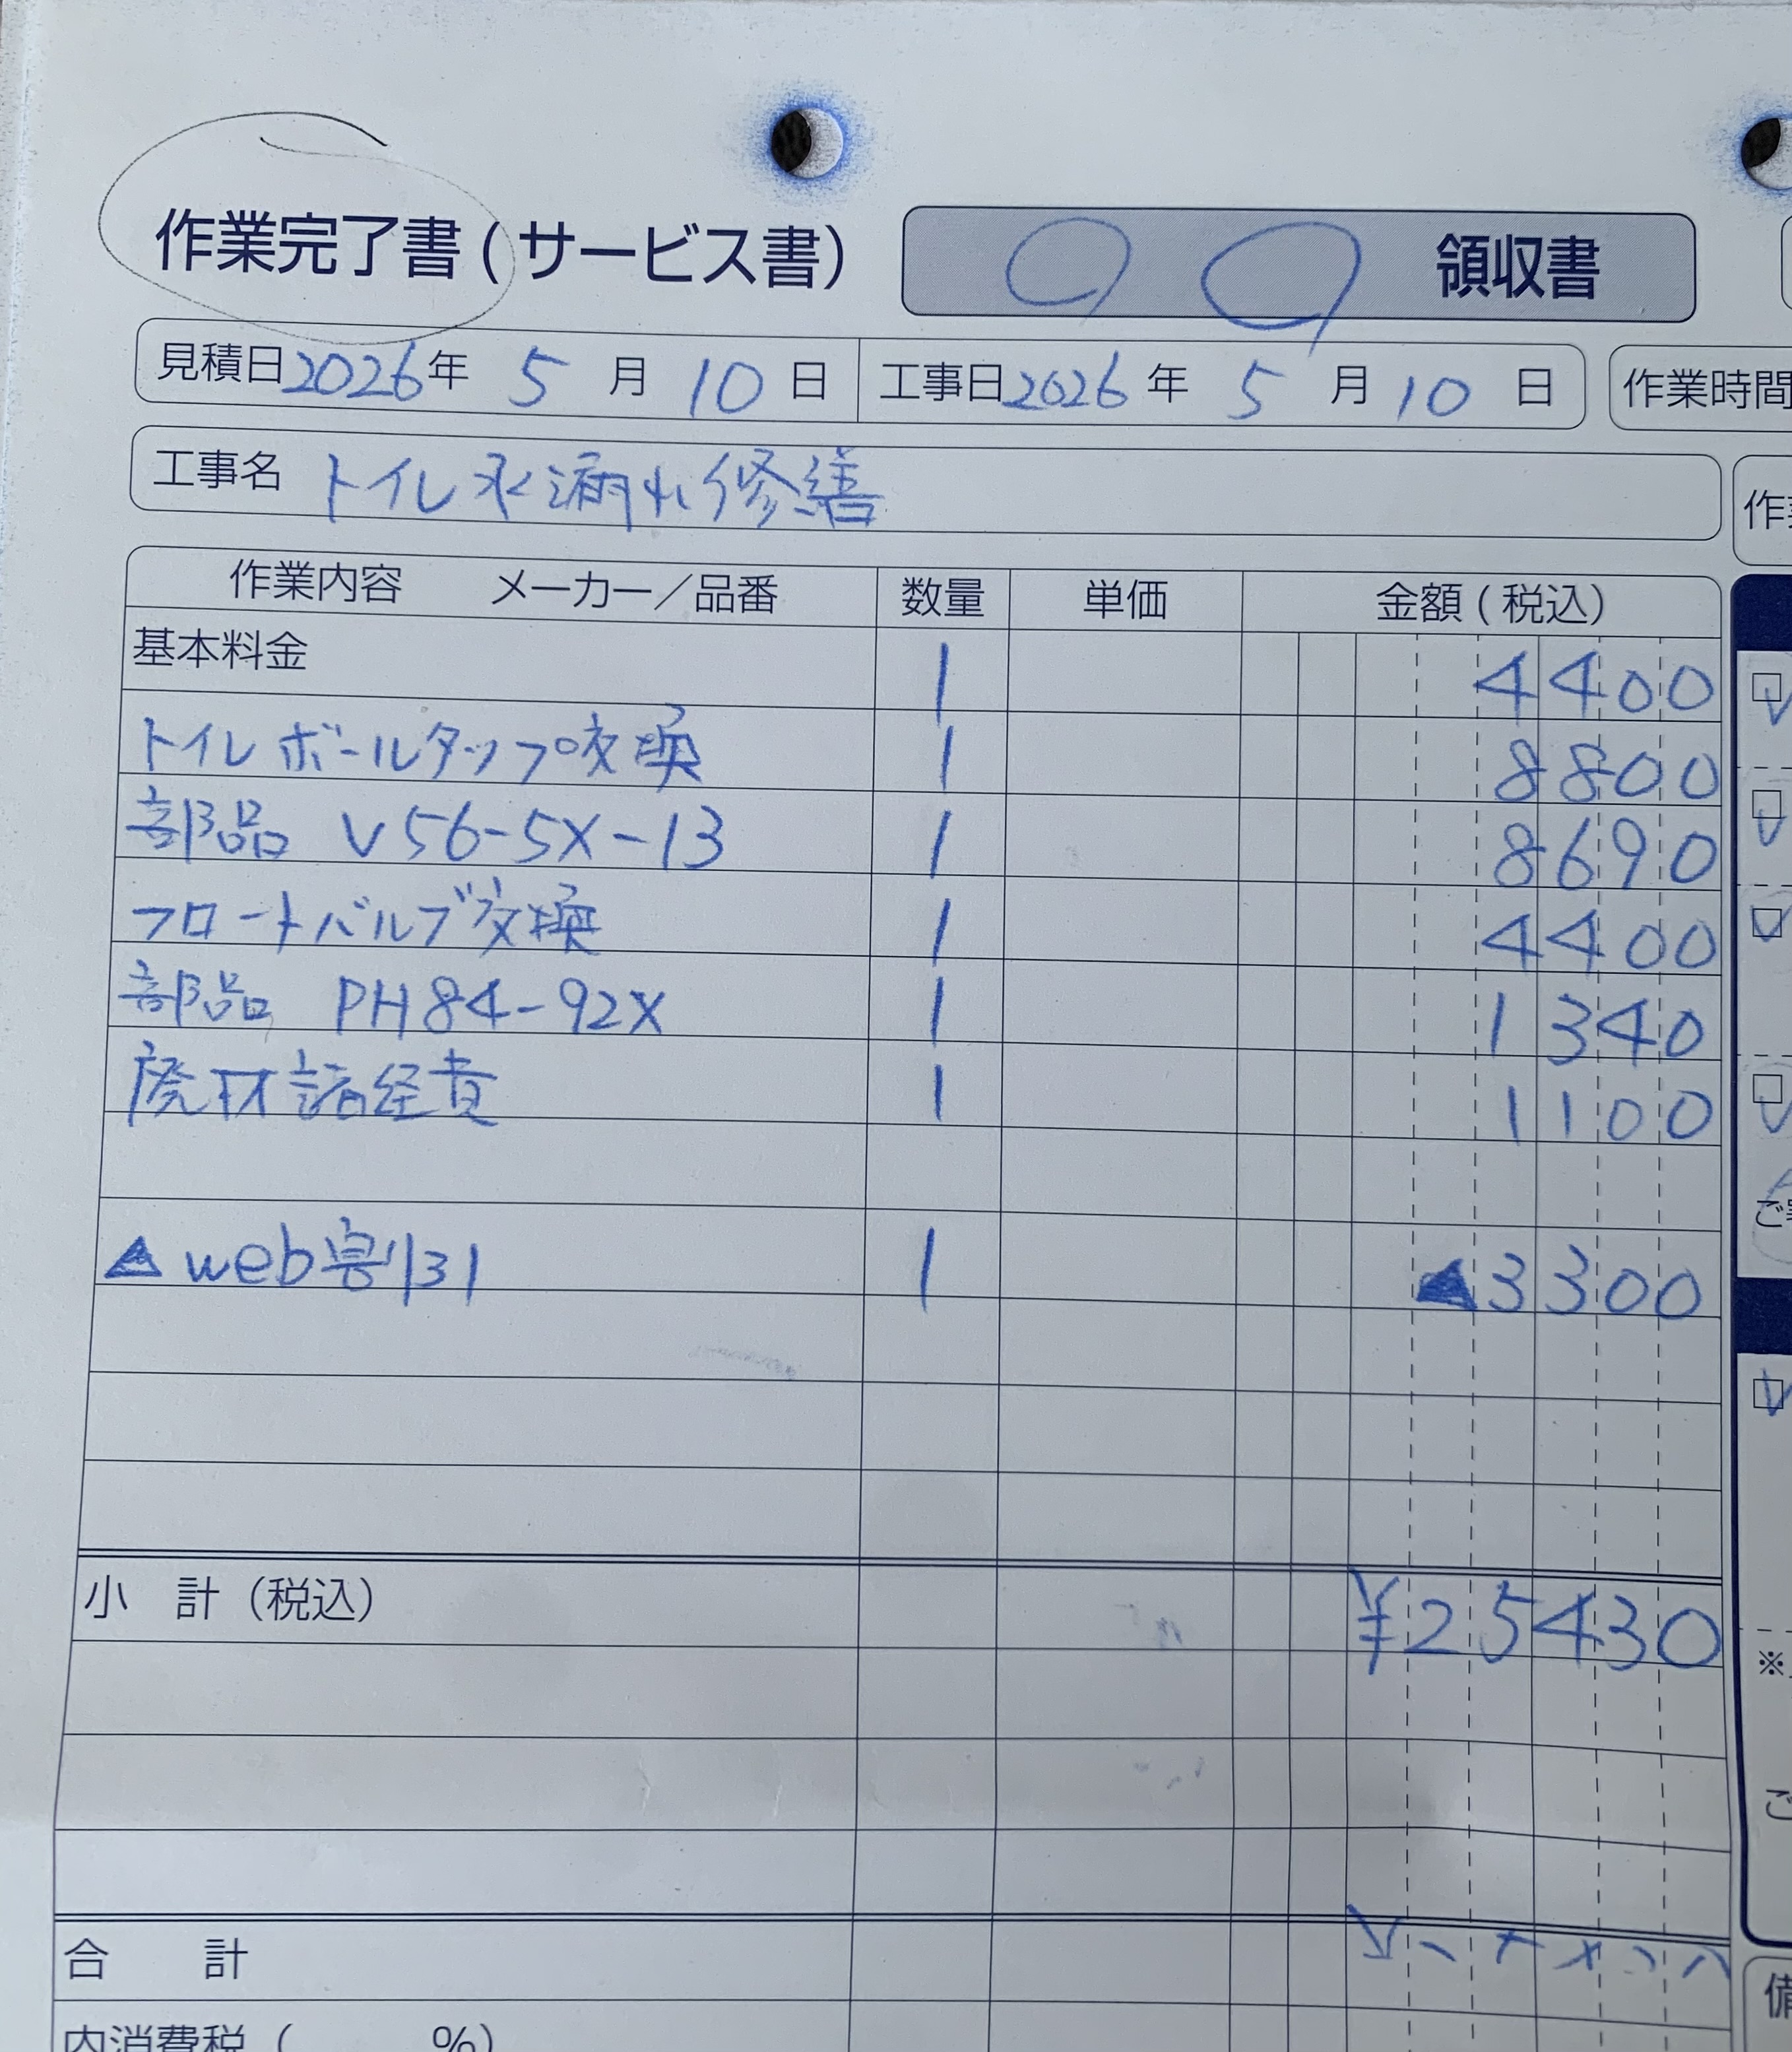 作業完了書(サービス書) 領収書
見積日2026年 5月10日 工事日2026年 5月10日 作業時間
工事名 トイレ水漏れ修繕
作業内容 メーカー／品番 数量 単価 金額(税込)
基本料金 1 4400
トイレボールタップ交換 1 8800
部品 V56-5X-13 1 8690
フロートバルブ交換 1 4400
部品 PH84-92X 1 1340
廃材諸経費 1 1100
▲web割引 1 ▲3300
小計(税込) ¥25430
合計
内消費税( %)